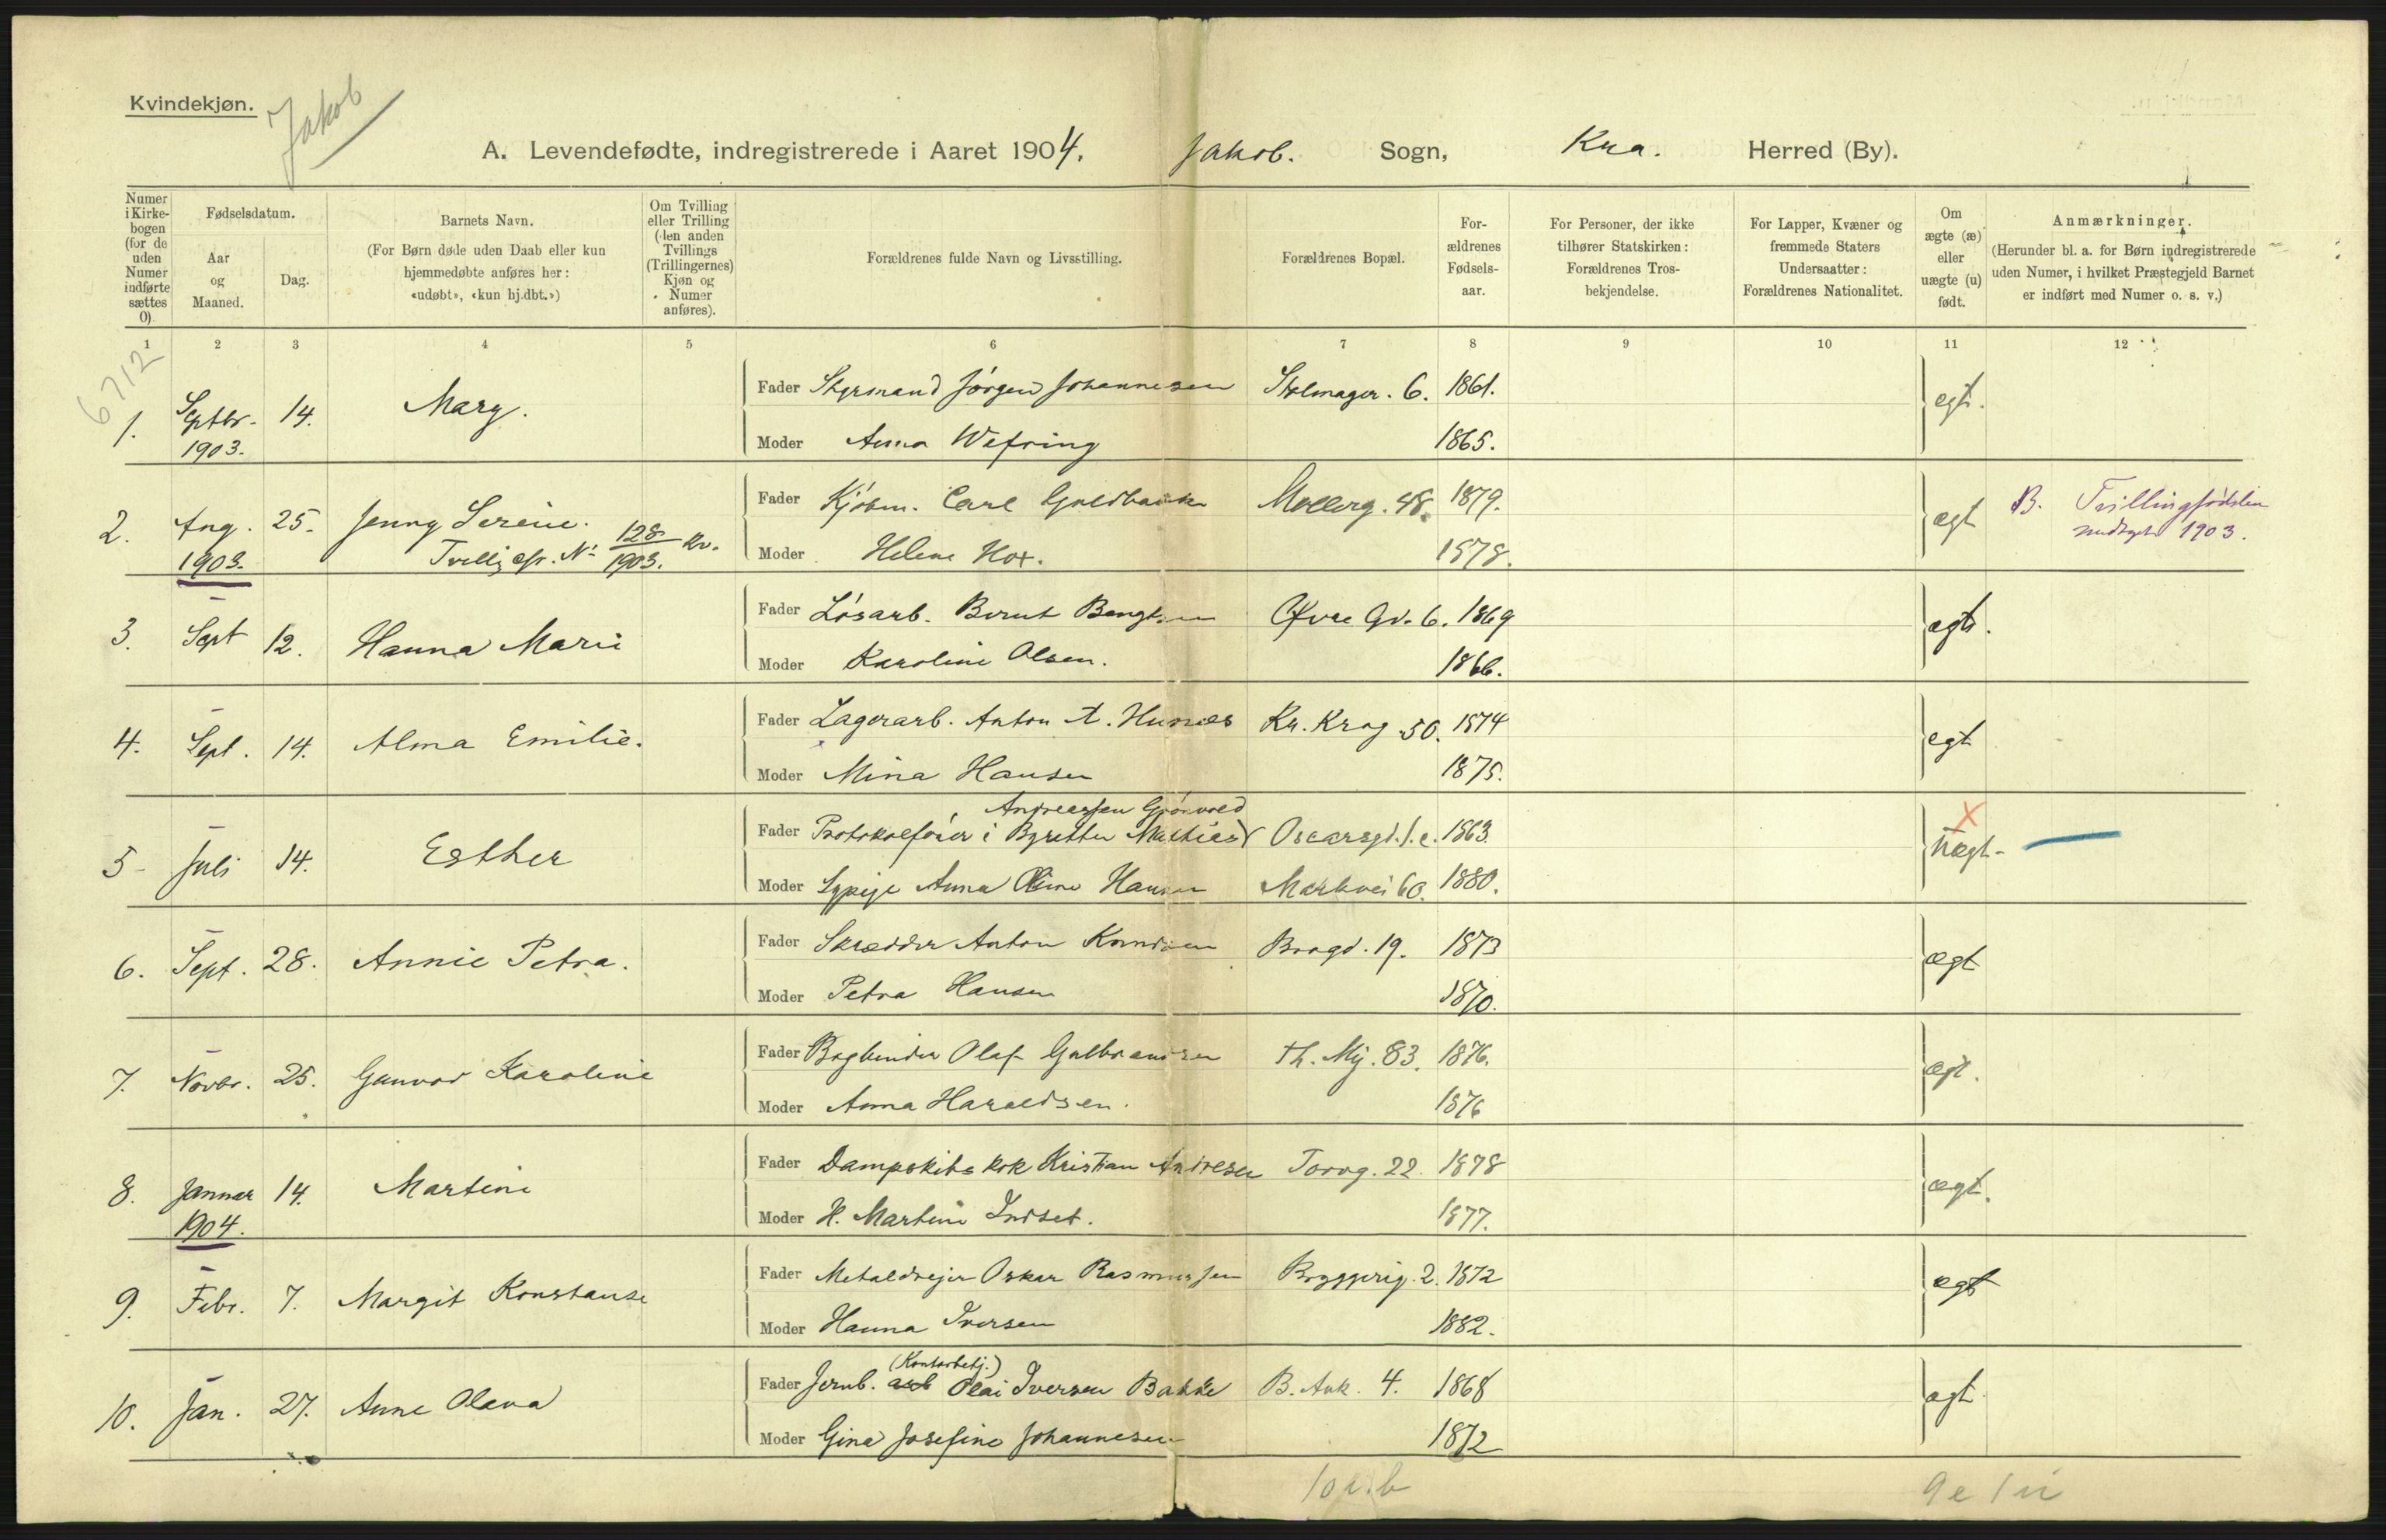 Kvindekjøn.
Jakob
A. Levendefødte, indregistrerede i Aaret 1904. Jakob. Sogn, Kra. Herred (By).
Numer i Kirkebogen (for de uden Numer indførte sættes 0)
Fødselsdatum.
Aar og Maaned.
Dag.
Barnets Navn.
(For Børn døde uden Daab eller kun hjemmedøbte anføres her: «udøbt», «kun hj.dbt.»)
Om Tvilling eller Trilling (den anden Tvillings (Trillingernes) Kjøn og Numer anføres).
Forældrenes fulde Navn og Livsstilling.
Forældrenes Bopæl.
Forældrenes Fødselsaar.
For Personer, der ikke tilhører Statskirken: Forældrenes Trosbekjendelse.
For Lapper, Kvæner og fremmede Staters Undersaatter: Forældrenes Nationalitet.
Om ægte (æ) eller uægte (u) født.
Anmærkninger.
(Herunder bl. a. for Børn indregistrerede uden Numer, i hvilket Præstegjeld Barnet er indført med Numer o. s. v.)
1 2 3 4 5 6 7 8 9 10 11 12
6712
1. Septbr. 1903. 14. Mary.
Fader Styrmand Jørgen Johannesen Stolmager. 6. 1861. egt.
Moder Anna Wefring 1865.
2. Aug. 1903. 25. Jenny Serine. Tvilling cfr. No 128/1903. Kv.
Fader Kjøbm. Carl Guldbank Møllerg. 48. 1879. ægt B. Tvillingfødslen medtaget 1903.
Moder Helene Hox. 1878.
3. Sept 12. Hanna Marie
Fader Løsarb. Bernt Bengtsen Øvre Gd. 6. 1869 ægt.
Moder Karoline Olsen. 1866.
4. Sept. 14. Alma Emilie.
Fader Lagerarb. Anton A. Hunæs Kr. Krog 50. 1874 egt
Moder Mina Hansen 1875.
5 Juli 14. Esther
Andreassen Grønvold
Fader Protokolfører i Byretten Mathias Oscarsgd. 1. c. 1863. X uægt
Moder Sypige Anna Oline Hansen Markvei 60. 1880.
6. Sept. 28. Annie Petra.
Fader Skrædder Anton Knudsen Brogd. 19. 1873 ægt
Moder Petra Hansen 1870.
7. Novbr. 25. Gunvor Karoline
Fader Bogbinder Olaf Gulbrandsen Th. Mij. 83. 1876. ægt.
Moder Anna Haraldsen. 1876
8. Januar 1904. 14. Martine
Fader Dampskibs kok Kristian Andresen Torvg. 22. 1878 ægt.
Moder H. Martine Indset. 1877.
9. Febr. 7. Margit Konstanse
Fader Metaldrejer Oskar Rasmussen Bryggerig. 2. 1872 ægt
Moder Hanna Iversen 1882.
10. Jan. 27. Anne Olava
(Kontorbetj.)
Fader Jernb. arb Olai Iversen Bakke B. Ank. 4. 1868 ægt
Moder Gina Josefine Johannesen 1872
10 l. b
9 e 1 u